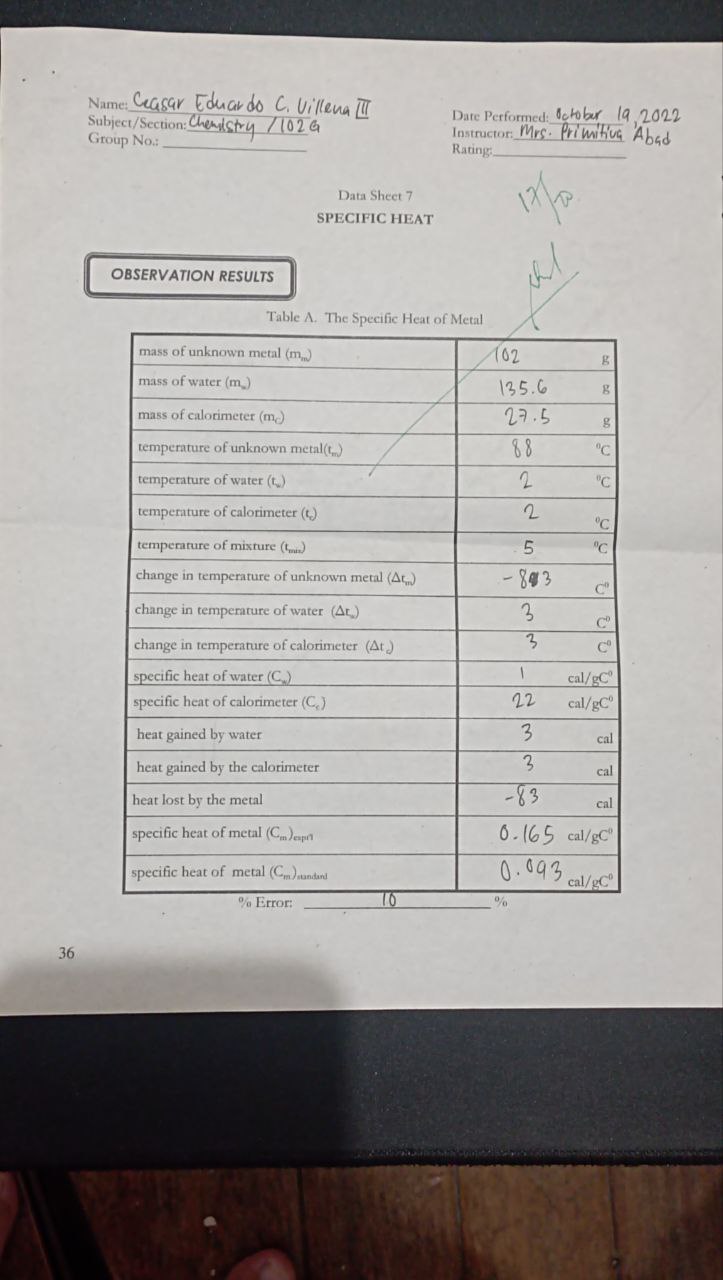 Name: Ceasar Eduardo C. Villena III
Subject/Section: Chemistry /102G
Group No.:
Date Performed: October 19, 2022
Instructor: Mrs. Primitiva Abad
Rating:
Data Sheet 7
SPECIFIC HEAT
OBSERVATION RESULTS
Table A. The Specific Heat of Metal
mass of unknown metal (mm) 102 g
mass of water (mw) 135.6 g
mass of calorimeter (mc) 27.5 g
temperature of unknown metal(tm) 88 °C
temperature of water (tw) 2 °C
temperature of calorimeter (tc) 2 °C
temperature of mixture (tmix) 5 °C
change in temperature of unknown metal (Δtm) -83 C°
change in temperature of water (Δtw) 3 C°
change in temperature of calorimeter (Δtc) 3 C°
specific heat of water (Cw) 1 cal/gC°
specific heat of calorimeter (Cc) 22 cal/gC°
heat gained by water 3 cal
heat gained by the calorimeter 3 cal
heat lost by the metal -83 cal
specific heat of metal (Cm)exptl 0.165 cal/gC°
specific heat of metal (Cm)standard 0.093 cal/gC°
% Error: 10 %
36